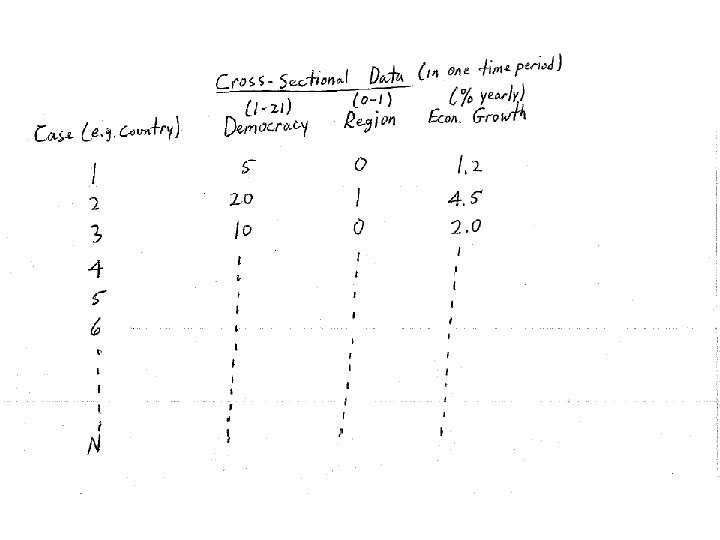 Cross-Sectional Data (in one time period)
(1-21) (0-1) (% yearly)
Case (e.g. Country) Democracy Region Econ. Growth
1 5 0 1.2
2 20 1 4.5
3 10 0 2.0
4
5
6
N